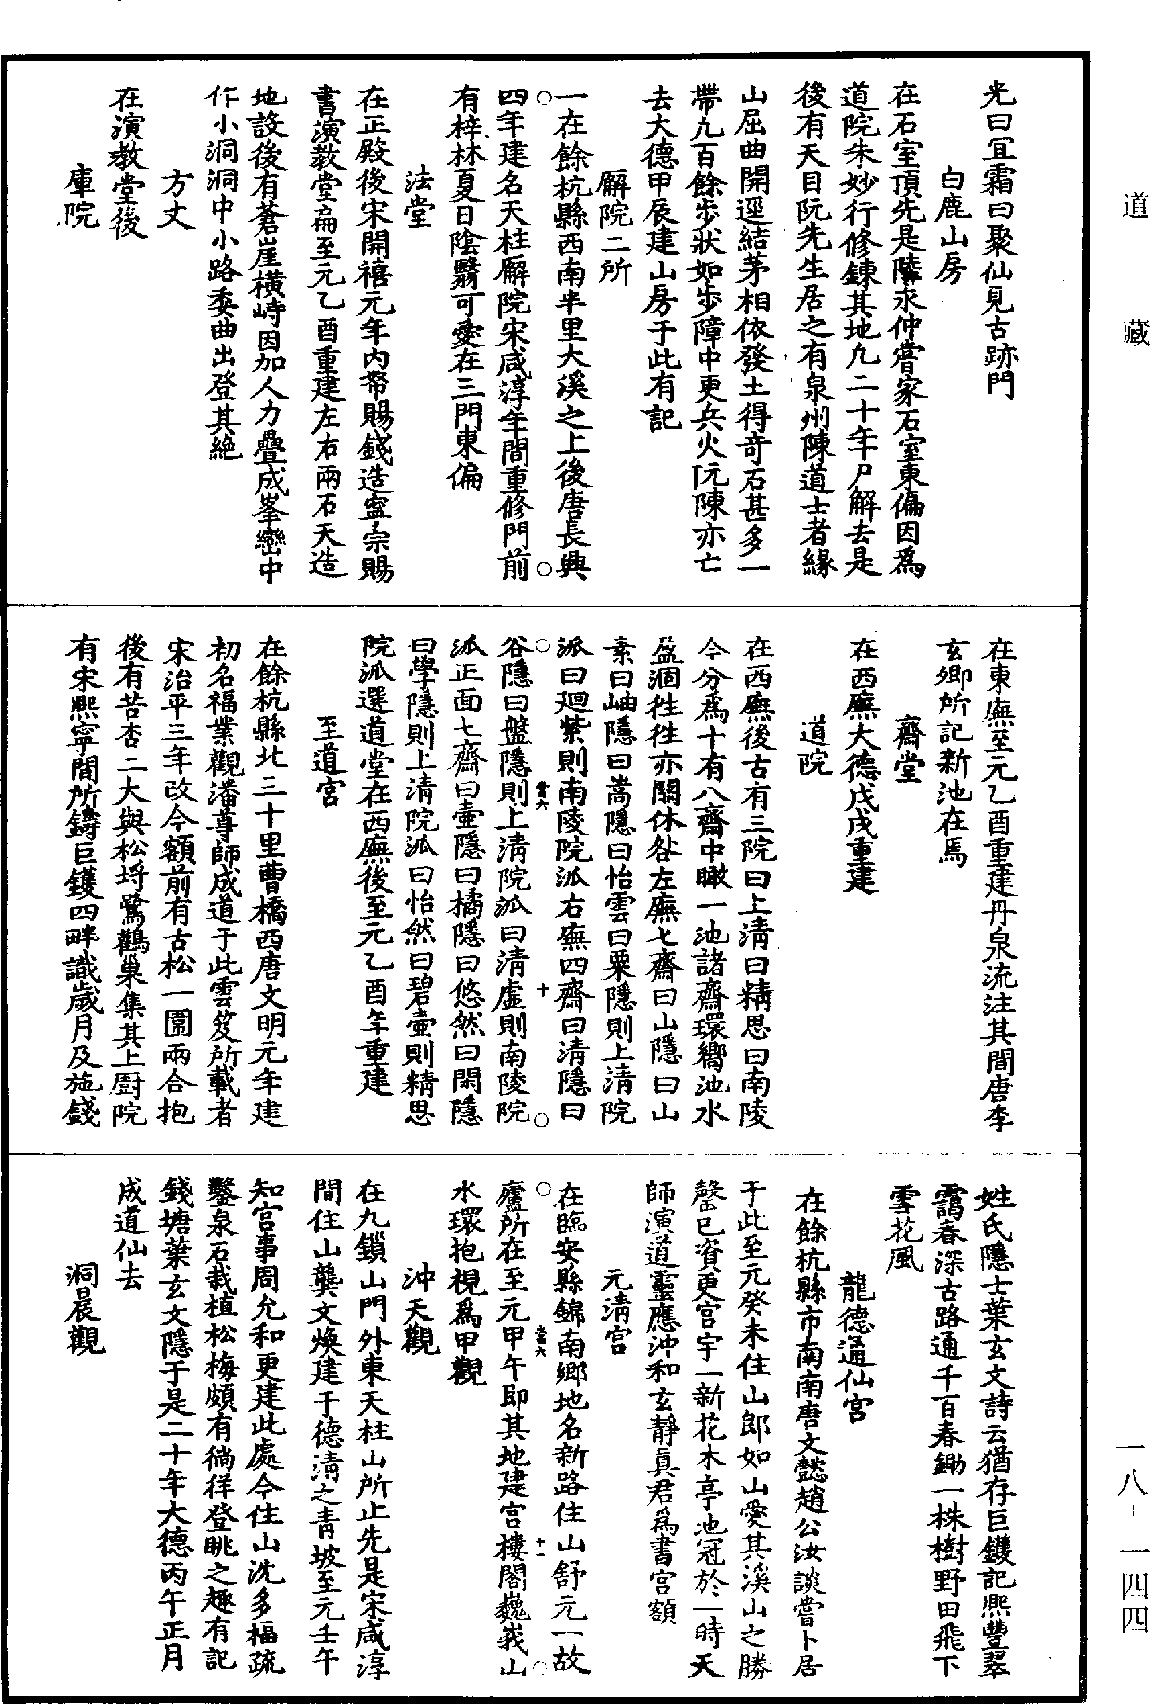 道藏
光曰宜霜曰聚仙見古跡門
白鹿山房
在石室頂先是陸永仲嘗家石室東偏因爲
道院朱妙行修鍊其地九二十年尸解去是
後有天目阮先生居之有泉州陳道士者緣
山屈曲開逕結茅相依發土得奇石甚多一
帶九百餘步狀如步障中更兵火阮陳亦亡
去大德甲辰建山房于此有記
廨院二所
一在餘杭縣西南半里大溪之上後唐長興
四年建名天柱廨院宋咸淳年間重修門前
有梓林夏日陰翳可愛在三門東偏
法堂
在正殿後宋開禧元年內帑賜錢造寧宗賜
書演教堂扁至元乙酉重建左右兩石天造
地設後有蒼崖橫峙因加人力疊成峯巒中
作小洞洞中小路委曲出登其絶
方丈
在演教堂後
庫院
在東廡至元乙酉重建丹泉流注其間唐李
玄卿所記新池在焉
齋堂
在西廡大德戊戌重建
道院
在西廡後古有三院曰上清曰精思曰南陵
今分爲十有八齋中瞰一池諸齋環嚮池水
盈涸徃徃亦關休咎左廡七齋曰山隱曰山
素曰岫隱曰嵩隱曰怡雲曰粟隱則上清院
派曰廻紫則南陵院派右廡四齋曰清隱曰
谷隱曰盤隱則上清院派曰清虛則南陵院
派正面七齋曰壷隱曰橘隱曰悠然曰閑隱
曰學隱則上清院派曰怡然曰碧壷則精思
院派選道堂在西廡後至元乙酉年重建
至道宮
在餘杭縣北三十里曹橋西唐文明元年建
初名福業觀潘尊師成道于此雲笈所載者
宋治平三年改今額前有古松一圍兩合抱
後有苦杏二大與松埒鷺鸛巢集其上厨院
有宋熙寧間所鑄巨鑊四畔識歲月及施錢
姓氏隱士葉玄文詩云猶存巨鑊記熙豐翠
靄春深古路通千百春鋤一株樹野田飛下
雪花風
龍德通仙宮
在餘杭縣市南南唐文懿趙公汝談嘗卜居
于此至元癸未住山郎如山愛其溪山之勝
罄已資更宮宇一新花木亭池冠於一時天
師演道靈應沖和玄靜真君爲書宮額
元清宮
在臨安縣錦南鄉地名新路住山舒元一故
廬所在至元甲午即其地建宮樓閣巍峩山
水環抱視爲甲觀
沖天觀
在九鎖山門外東天柱山所止先是宋咸淳
間住山龔文煥建于德清之青坡至元壬午
知宮事周允和更建此處今住山沈多福疏
鑿泉石栽植松梅頗有徜徉登眺之趣有記
錢塘葉玄文隱于是二十年大德丙午正月
成道仙去
洞晨觀
一八-一四四